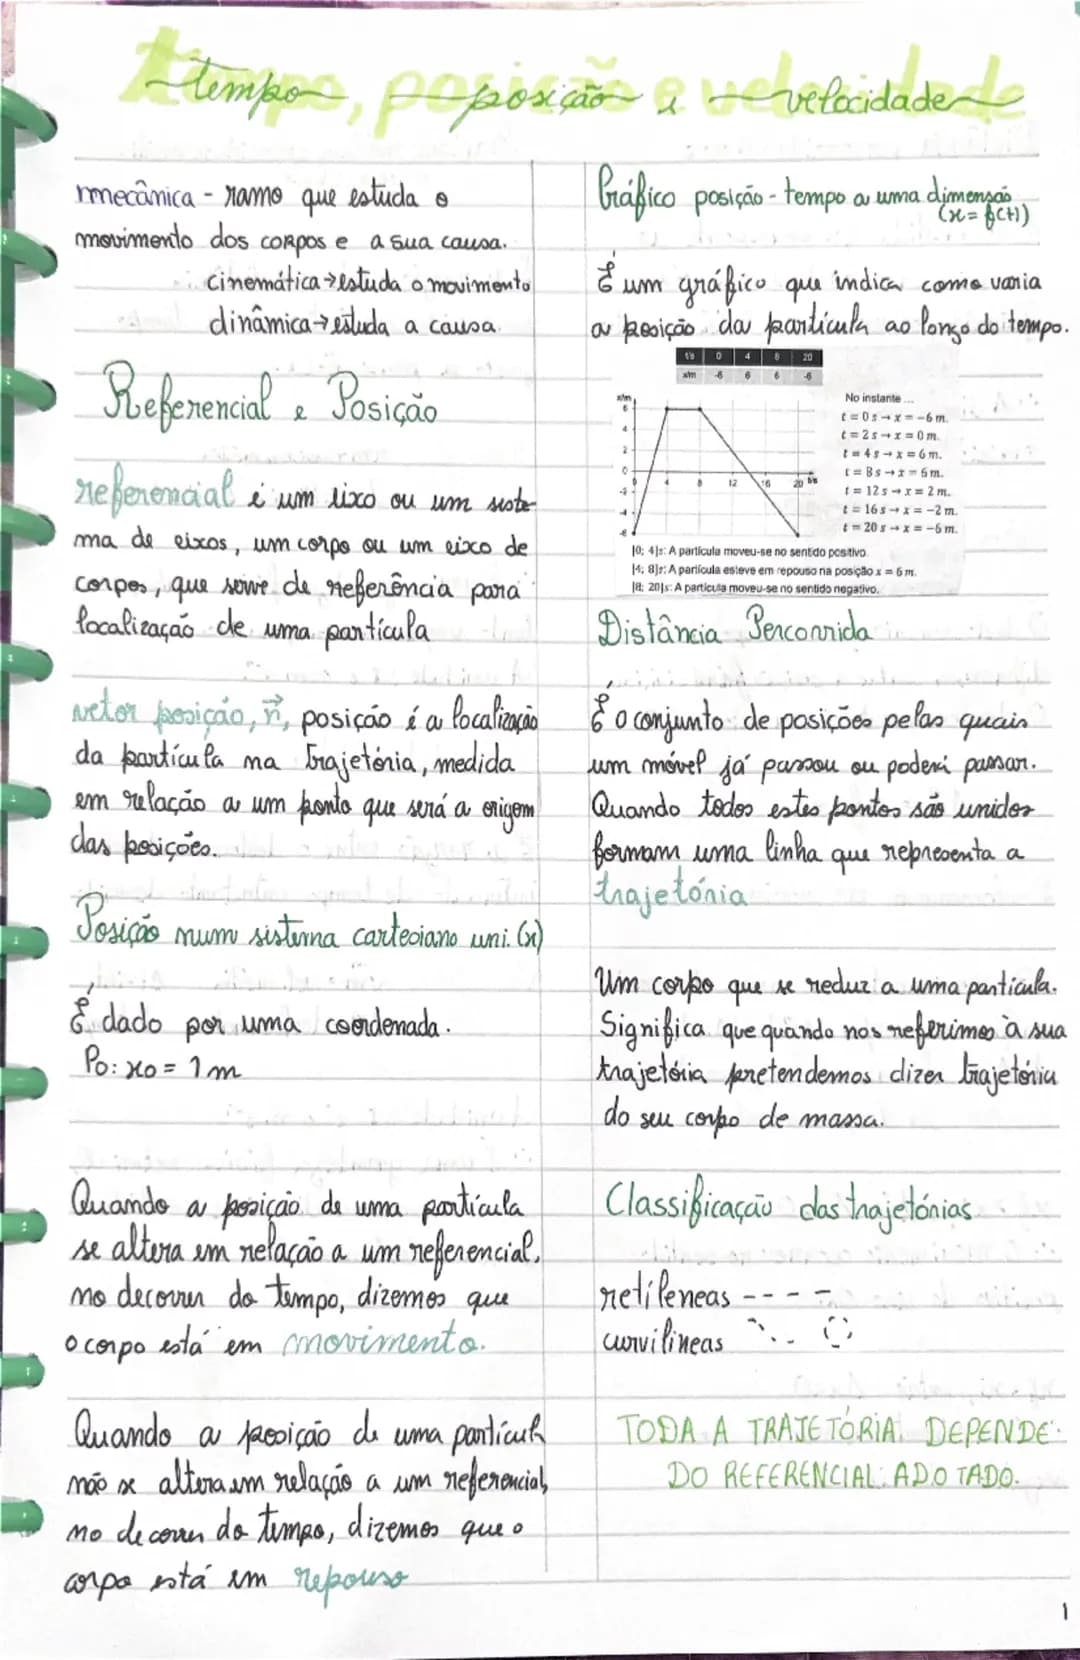 tempo, posição e velocidade
tempo posição e velocidade
mecânica - ramo que estuda o
movimento dos corpos e a sua causa.
cinemática → estuda o movimento
dinâmica → estuda a causa
Referencial e Posição
referencial é um eixo ou um siste-
ma de eixos, um corpo ou um eixo de
corpos, que serve de referência para
localização de uma partícula
vetor posição, r⃗, posição é a localização
da partícula na trajetória, medida
em relação a um ponto que será a origem
das posições.
Posição num sistema cartesiano uni. (x)
É dado por uma coordenada.
Po: xo = 1 m
Quando a posição de uma partícula
se altera em relação a um referencial,
no decorrer do tempo, dizemos que
o corpo está em movimento.
Quando a posição de uma partícula
não se altera em relação a um referencial,
no decorrer do tempo, dizemos que o
corpo está em repouso
Gráfico posição - tempo a uma dimensão
(x = f(t))
É um gráfico que indica como varia
a posição da partícula ao longo do tempo.
t/s 0 4 8 20
x/m -6 6 6 -6
x/m
6
4
2
0
-2
-4
-6
0 4 8 12 16 20 t/s
No instante ...
t = 0 s → x = -6 m.
t = 2 s → x = 0 m.
t = 4 s → x = 6 m.
t = 8 s → x = 6 m.
t = 12 s → x = 2 m.
t = 16 s → x = -2 m.
t = 20 s → x = -6 m.
]0; 4[s: A partícula moveu-se no sentido positivo.
]4; 8[s: A partícula esteve em repouso na posição x = 6 m.
]8; 20[s: A partícula moveu-se no sentido negativo.
Distância Percorrida
É o conjunto de posições pelas quais
um móvel já passou ou poderá passar.
Quando todos estes pontos são unidos
formam uma linha que representa a
trajetória
Um corpo que se reduz a uma partícula.
Significa que quando nos referimos à sua
trajetória pretendemos dizer trajetória
do seu corpo de massa.
Classificação das trajetórias
retíleneas
curvilíneas
TODA A TRAJETÓRIA DEPENDE
DO REFERENCIAL ADOTADO.
1